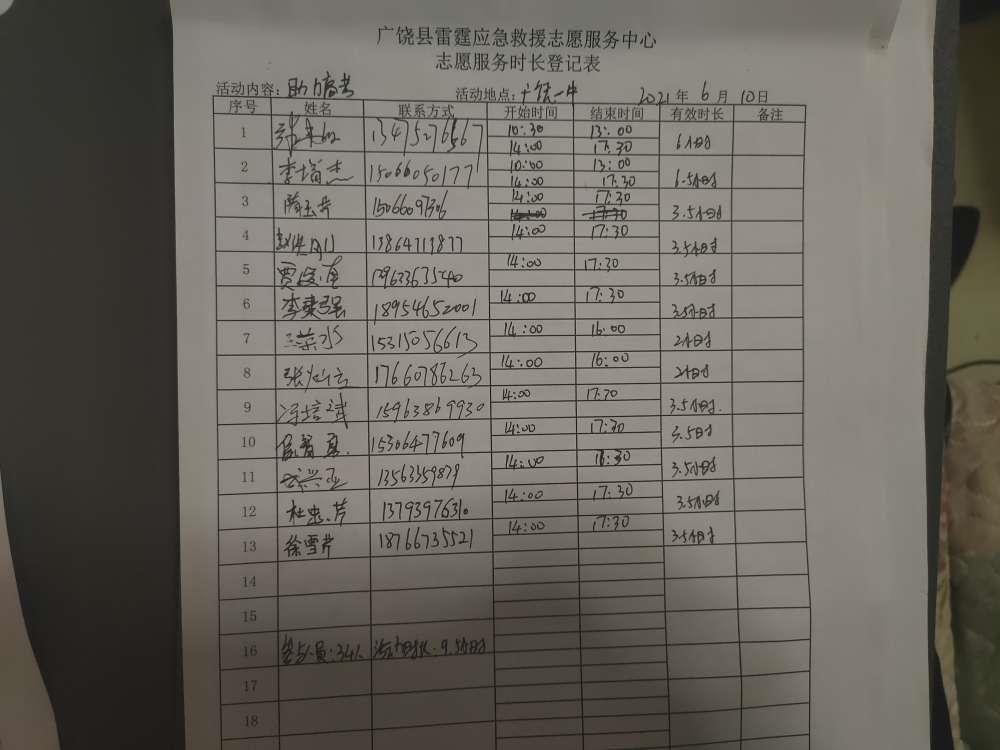 广饶县雷霆应急救援志愿服务中心
志愿服务时长登记表
活动内容: 助力高考 活动地点: 广饶一中 2021年 6月 10日
序号 姓名 联系方式 开始时间 结束时间 有效时长 备注
1 13475276567 10:30 13:00 6小时
14:00 17:30
2 李增杰 15066050177 10:00 13:00 6.5小时
14:00 17:30
3 隋玉芹 15066097306 14:00 17:30 3.5小时
14:00 17:30
4 13864713877 14:00 17:30 3.5小时
5 14:00 17:30 3.5小时
6 李爽强 18954652001 14:00 17:30 3.5小时
7 王荣水 15315056613 14:00 16:00 2小时
8 张灿云 17660786263 14:00 16:00 2小时
9 冯培斌 15963869930 14:00 17:30 3.5小时.
10 15306477609 14:00 17:30 3.5小时
11 13563359879 14:00 3.5小时
12 杜忠芹 13793976310 14:00 17:30 3.5小时
13 徐雪芹 18766735521 14:00 17:30 3.5小时
14
15
16 9.5小时
17
18